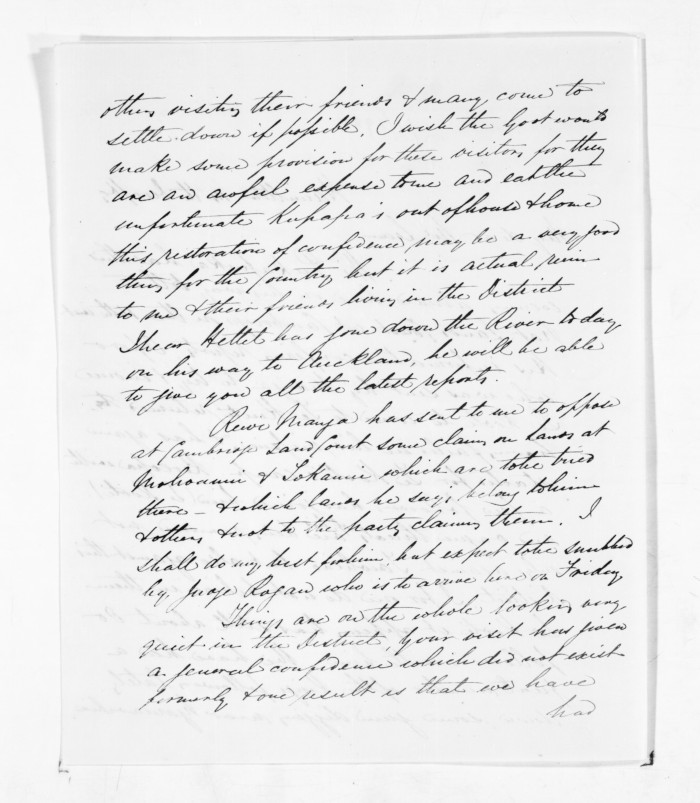 others visiting their friends & many come to
settle down if possible, I wish the Govt would
make some provision for these visitors for they
are an awful expense to me and eat the
unfortunate Kupapa's out of house & home
this restoration of confidence may be a very good
thing for the Country but it is actual ruin
to me & their friends living in the District
I hear Hettet has gone down the River today
on his way to Auckland, he will be able
to give you all the latest reports.
Rewi Manga has sent to me to oppose
at Cambridge Land Court some claim on Lands at
Mohoaunui & Tokanui which are to be tried
there - & which lands he says belong to him
& others & not to the party claiming them. I
shall do my best for him but expect to be snubbed
by Judge Rogan who is to arrive here on Friday
Things are on the whole looking very
quiet in the District, your visit has given
a general confidence which did not exist
formerly & one result is that we have
had